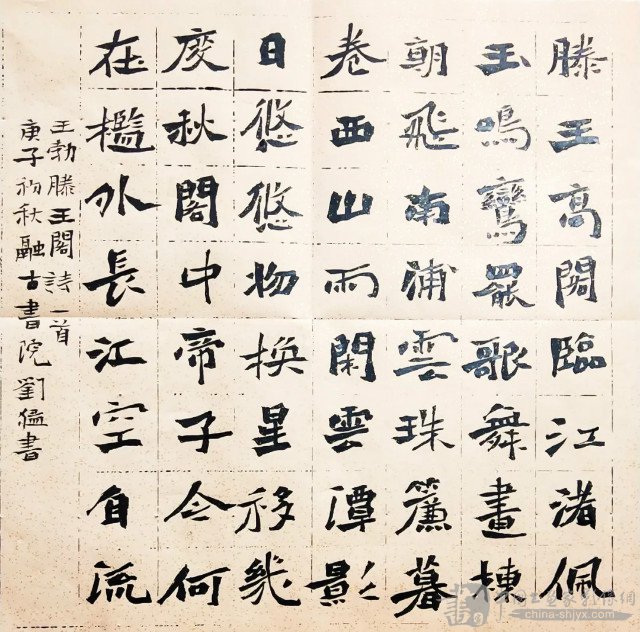 滕王高閣臨江渚佩
玉鳴鸞罷歌舞畫棟
朝飛南浦雲珠簾暮
卷西山雨閑雲潭影
日悠悠物換星移幾
度秋閣中帝子今何
在檻外長江空自流
王勃滕王閣詩一首
庚子初秋融古書院劉書
china-shjyx.com